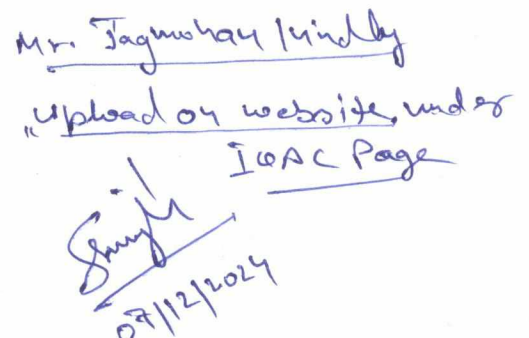 Mr. Jagmohan kindly
upload on website, under
IQAC Page
Singh
07/12/2024